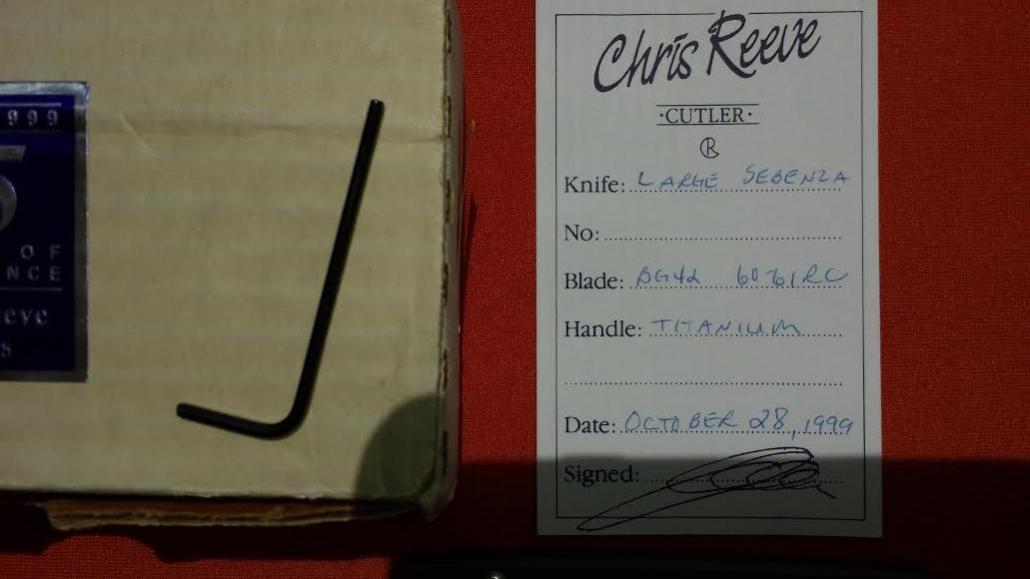 999
OF
NCE
eeve
s
Chris Reeve
·CUTLER·
®
Knife: LARGE SEBENZA
No:
Blade: BG42 60-61RC
Handle: TITANIUM
Date: OCTOBER 28, 1999
Signed: